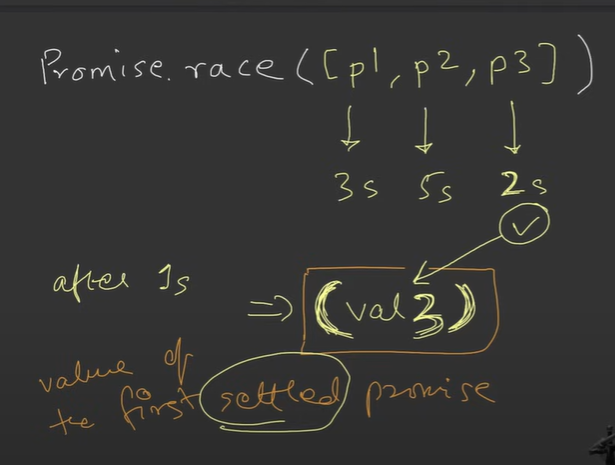 Promise.race([p1, p2, p3])
3s 5s 2s
after 1s => (val3)
value of
the first settled promise